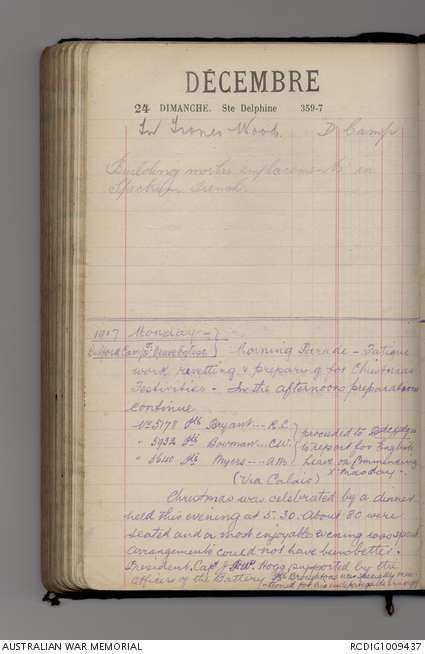 DÉCEMBRE
24 DIMANCHE. Ste Delphine 359-7
In Trones Wood. D Camp
Building mortar emplacements in
Spectrum Trench.
1917 Monday —
Morning Parade – Fatigue
work revetting & preparing for Christmas
Festivities – In the afternoon preparations
continue
No 3178 Bryant --- R.L.
" 5932 Bowman --- C.W.
" 3640 Myers --- A.M.
proceeded to
to report for English
Leave on Commencing
Xmas day.
(Via Calais)
Christmas was celebrated by a dinner
held this evening at 5.30. About 80 were
seated and a most enjoyable evening was spent
arrangements could not have been better.
President. Capt. Hogg supported by the
officers of the Battery
AUSTRALIAN WAR MEMORIAL RCDIG1009437